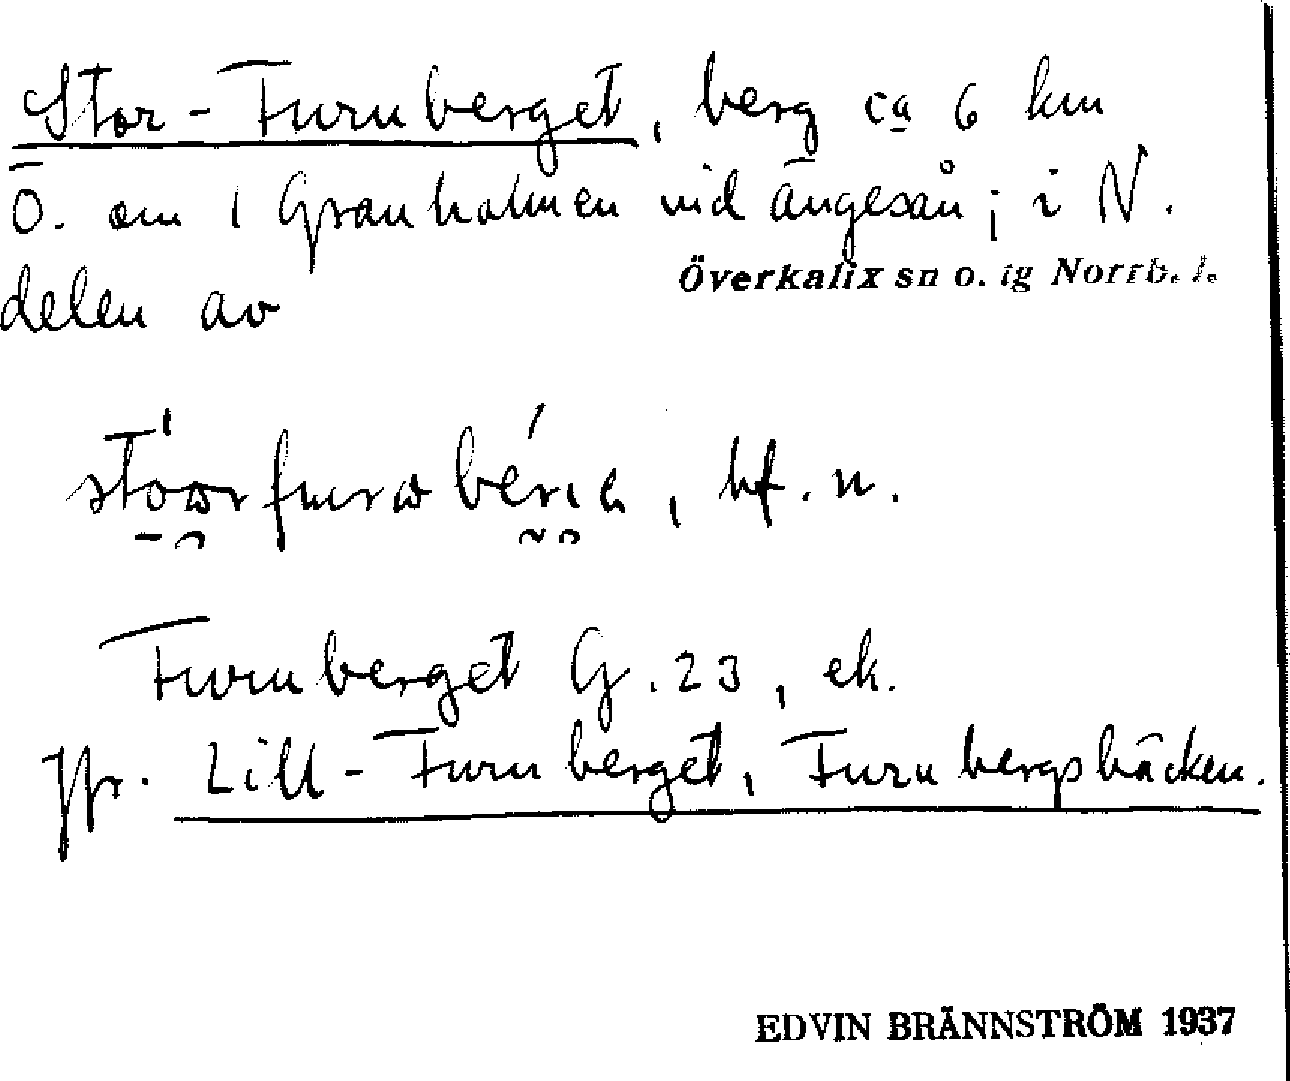 Stor-Furuberget, berg ca 6 km
Ö. om 1 Granholmen vid Ängesån; i N.
Överkalix sn o. tg Norrb. l.
delen av
bf. n.
Furuberget G. 23, ek.
Jfr. Lill-Furuberget, Furubergsbäcken.
EDVIN BRÄNNSTRÖM 1937